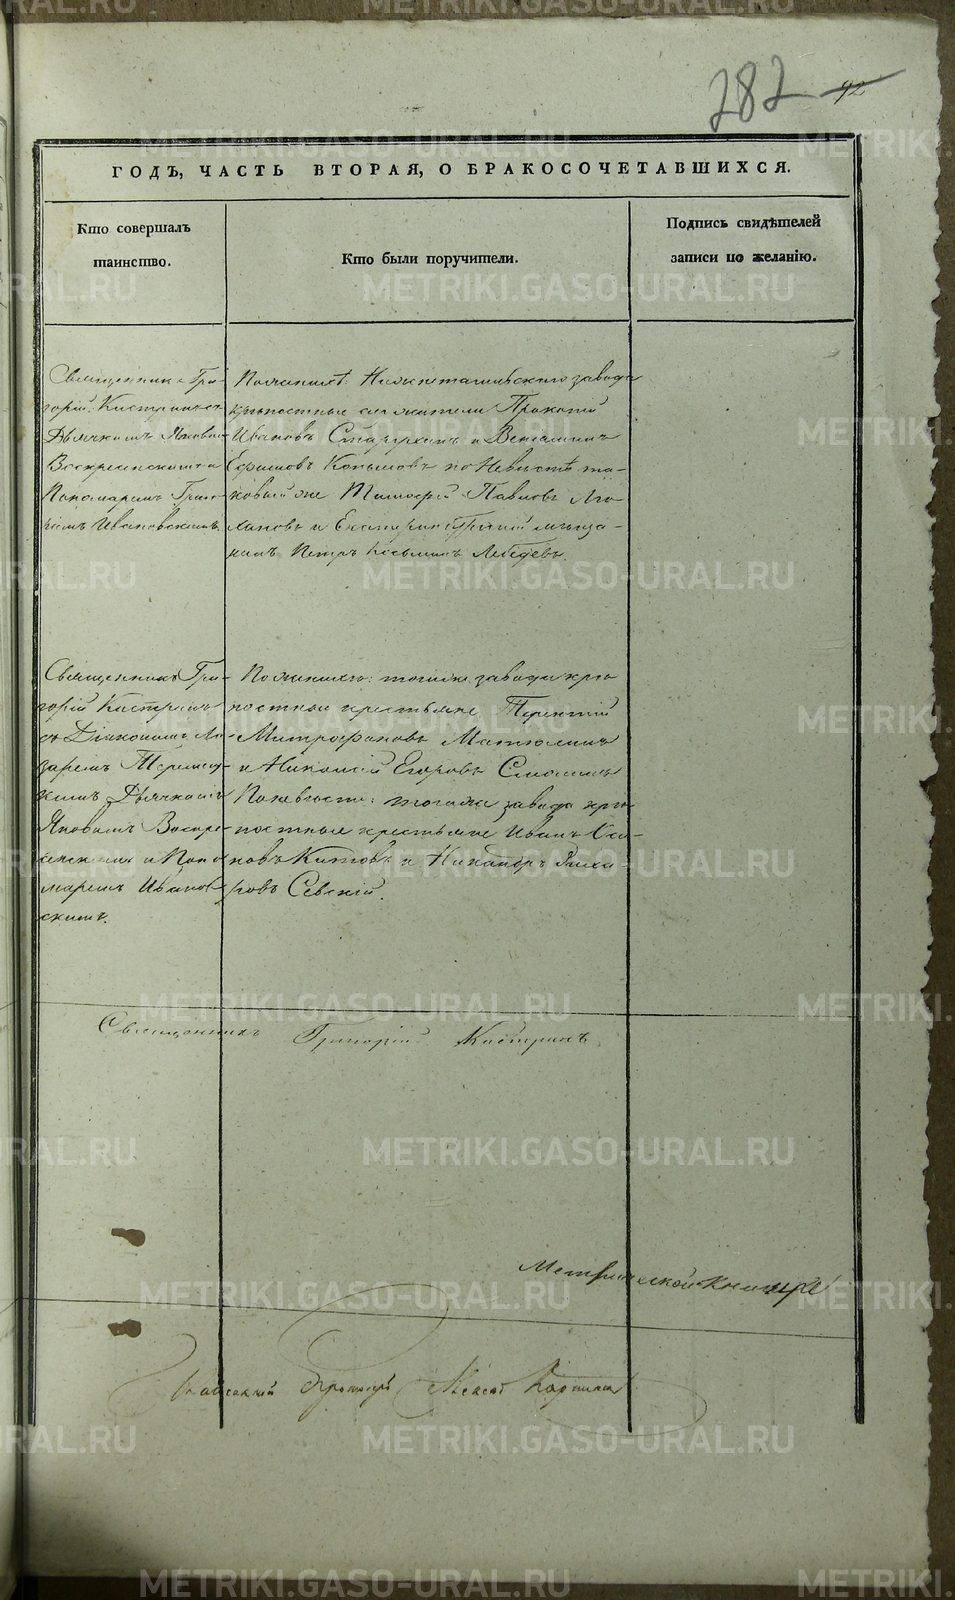 282 92
ГОДЪ, ЧАСТЬ ВТОРАЯ, О БРАКОСОЧЕТАВШИХСЯ.
Кто совершалъ
таинство.
Кто были поручители.
Подпись свидѣтелей
записи по желанію.
Священникъ Гри-
горій Кастринъ съ
Дьячкомъ Яковомъ
Воскресенскимъ и
Пономаремъ
Ивановскимъ
По женихѣ: Нижнетагильскаго завода
крѣпостные служители Прокопій
Ивановъ и Веніаминъ
Ефимовъ Копыловъ по Невѣстѣ та-
ковый же Тимофей Павловъ
и Екатеринбургскій мѣща-
нинъ Петръ Козьминъ Лебедевъ.
Священникъ Гри-
горій Кастринъ
съ Діакономъ Ла-
заремъ
Дьячкомъ
Яковомъ Воскре-
сенскимъ и Поно-
маремъ Иванов-
скимъ.
По женихѣ: тогоже завода крѣ-
постные крестьяне Терентій
Митрофановъ Матюшинъ
и Николай Егоровъ
По невѣстѣ: тогоже завода крѣ-
постные крестьяне Иванъ
Китовъ и Никаноръ Заха-
ровъ Севскій.
Священникъ Григорій Кастринъ
Метрической книгѣ
Протоіерей Алексій Карпинскій
METRIKI.GASO-URAL.RU